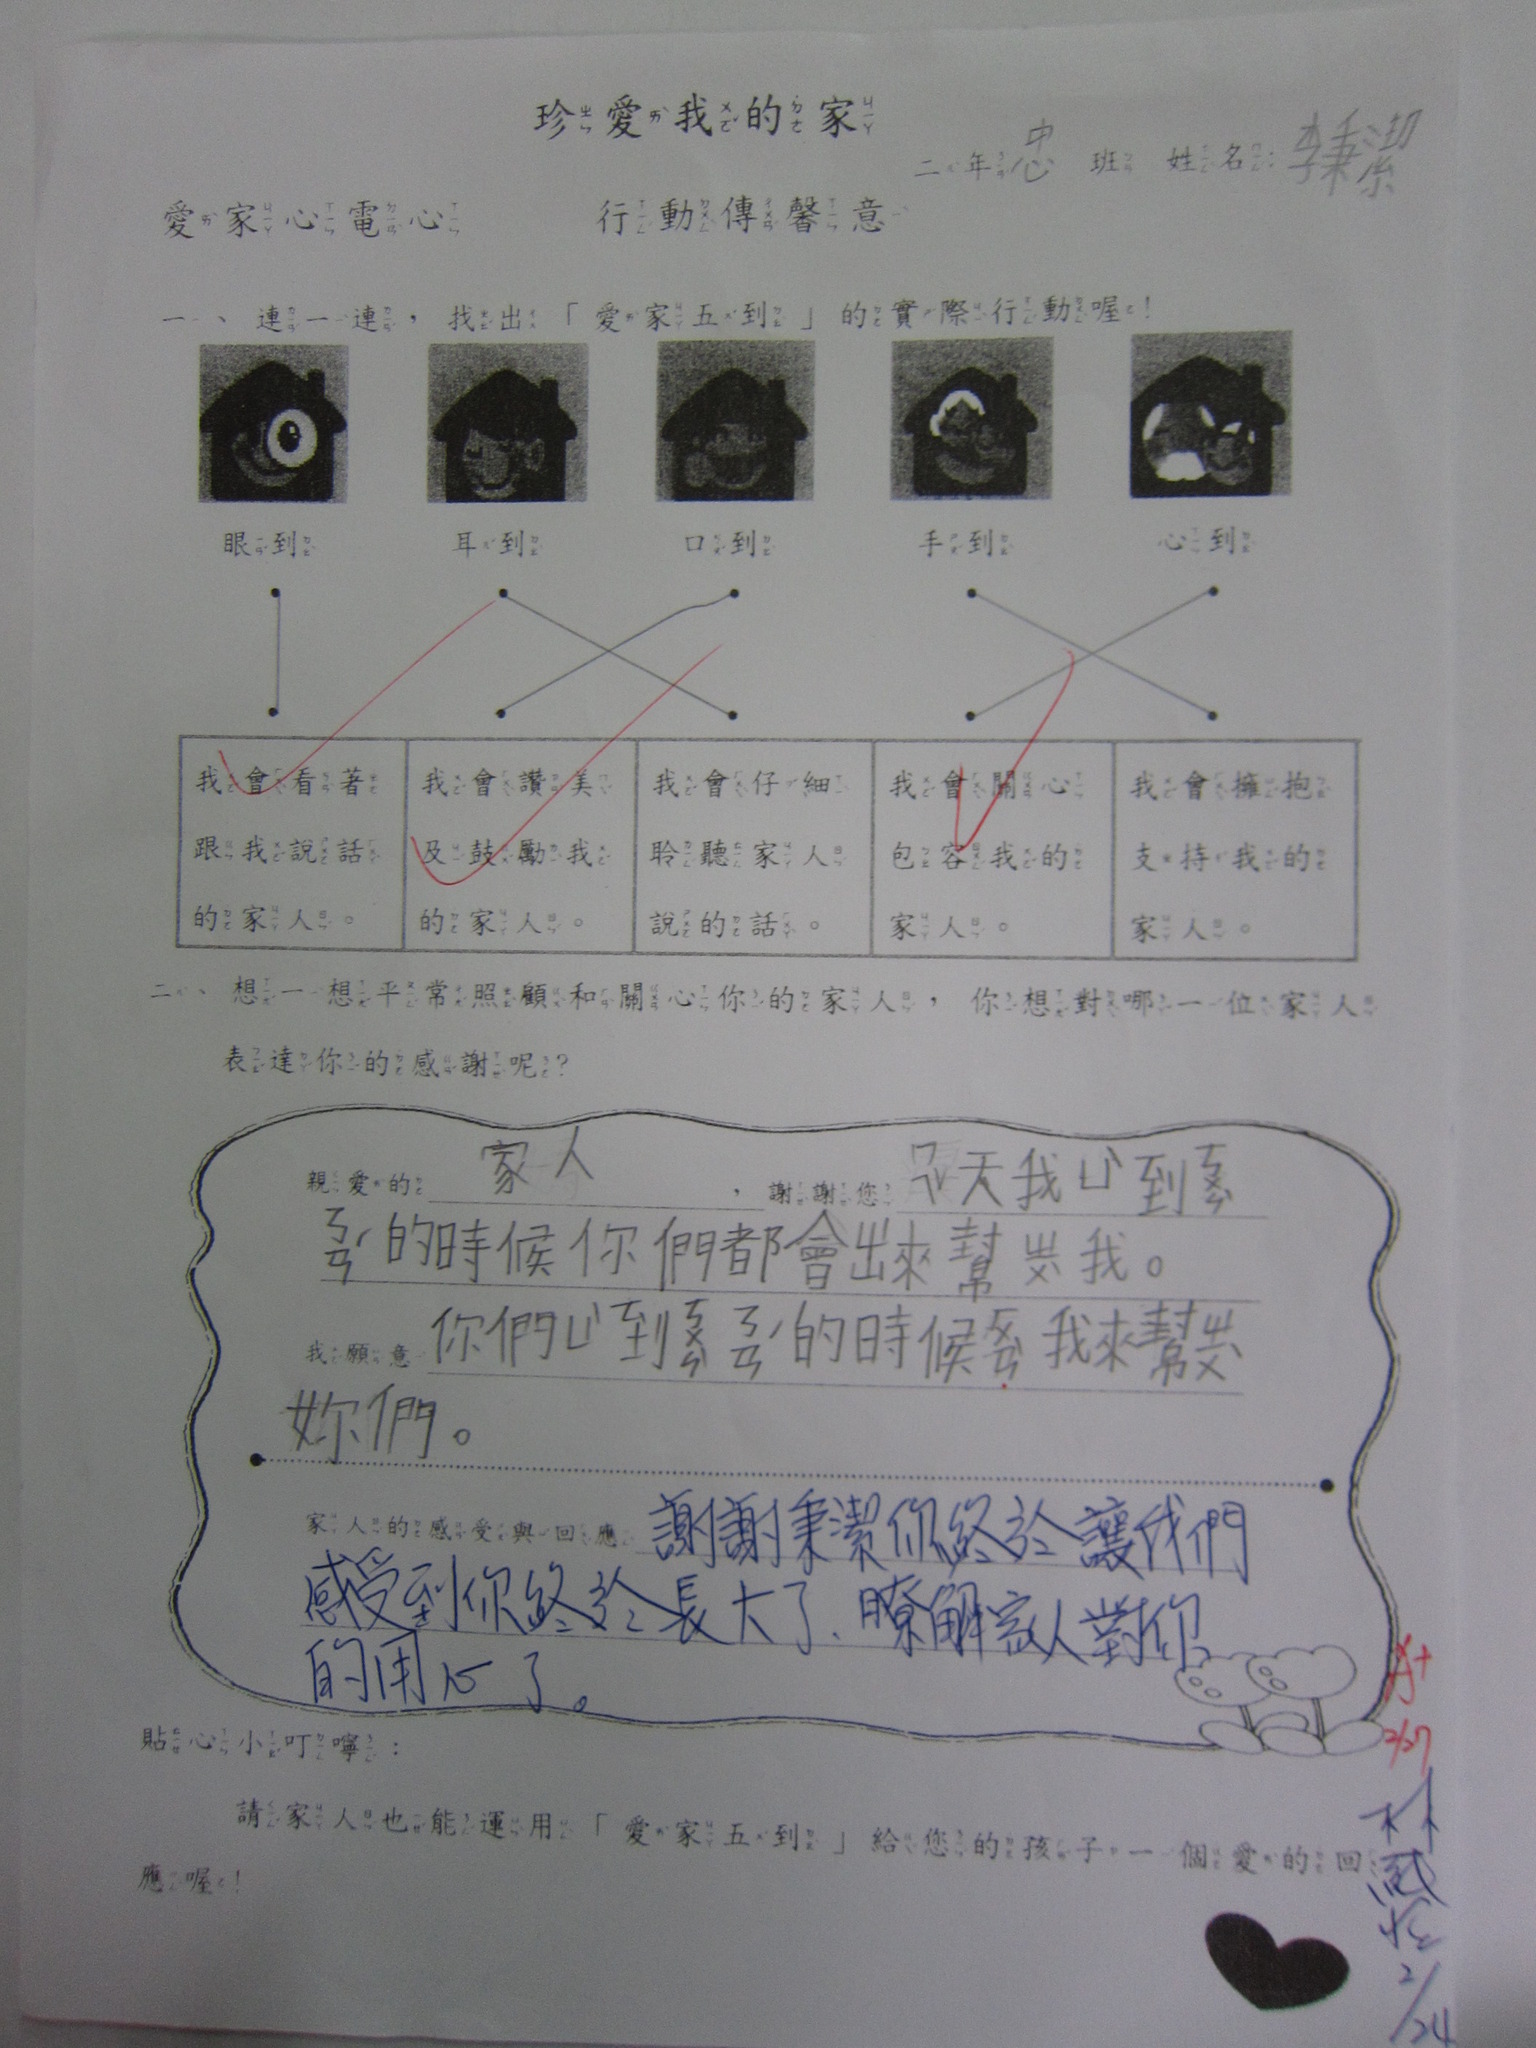 珍愛我的家
二年忠班 姓名:李秉潔
愛家心電心 行動傳馨意
一、連一連，找出「愛家五到」的實際行動喔！
眼到 耳到 口到 手到 心到
我會看著跟我說話的家人。
我會讚美及鼓勵我的家人。
我會仔細聆聽家人說的話。
我會關心包容我的家人。
我會擁抱支持我的家人。
二、想一想平常照顧和關心你的家人，你想對哪一位家人
表達你的感謝呢？
親愛的家人，謝謝您 天我ㄩˋ到ㄎㄨㄣˋ
ㄋㄢˊ的時候你們都會出來幫ㄓㄨˋ我。
我願意你們ㄩˋ到ㄎㄨㄣˋㄋㄢˊ的時候 我來幫ㄓㄨˋ
妳們。
家人的感受與回應 謝謝秉潔你終於讓我們
感受到你終於長大了、瞭解家人對你
的用心了。
貼心小叮嚀：
請家人也能運用「愛家五到」給您的孩子一個愛的回
應喔！
2/27
2/24